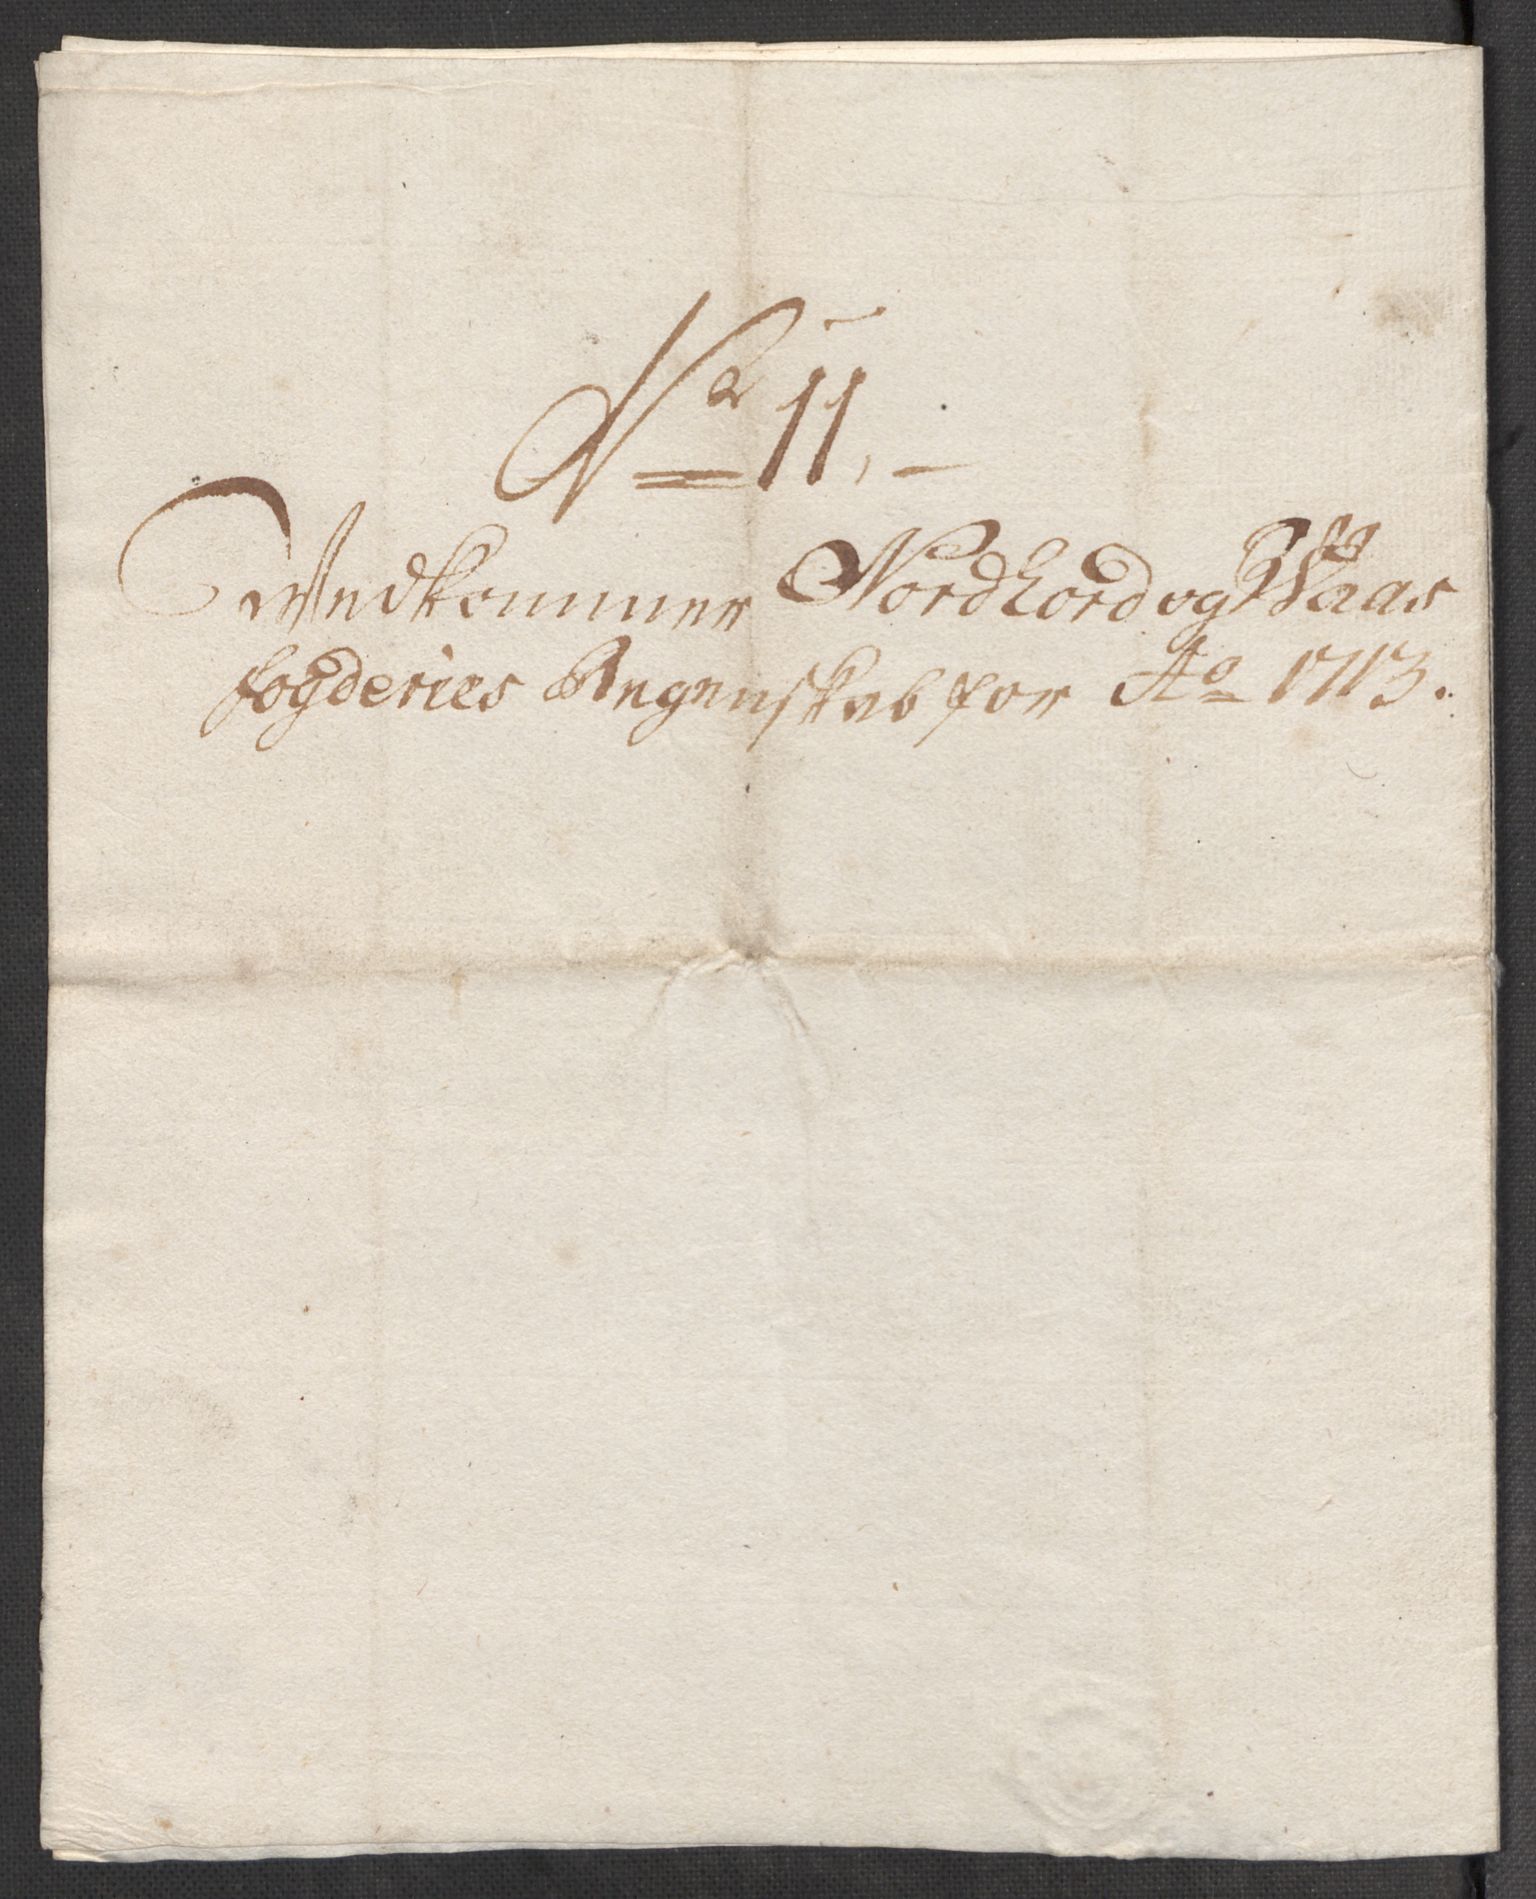 No 11,
Vedkommer Nordhord og Waas
fogderies Regenskab for Ao 1713.